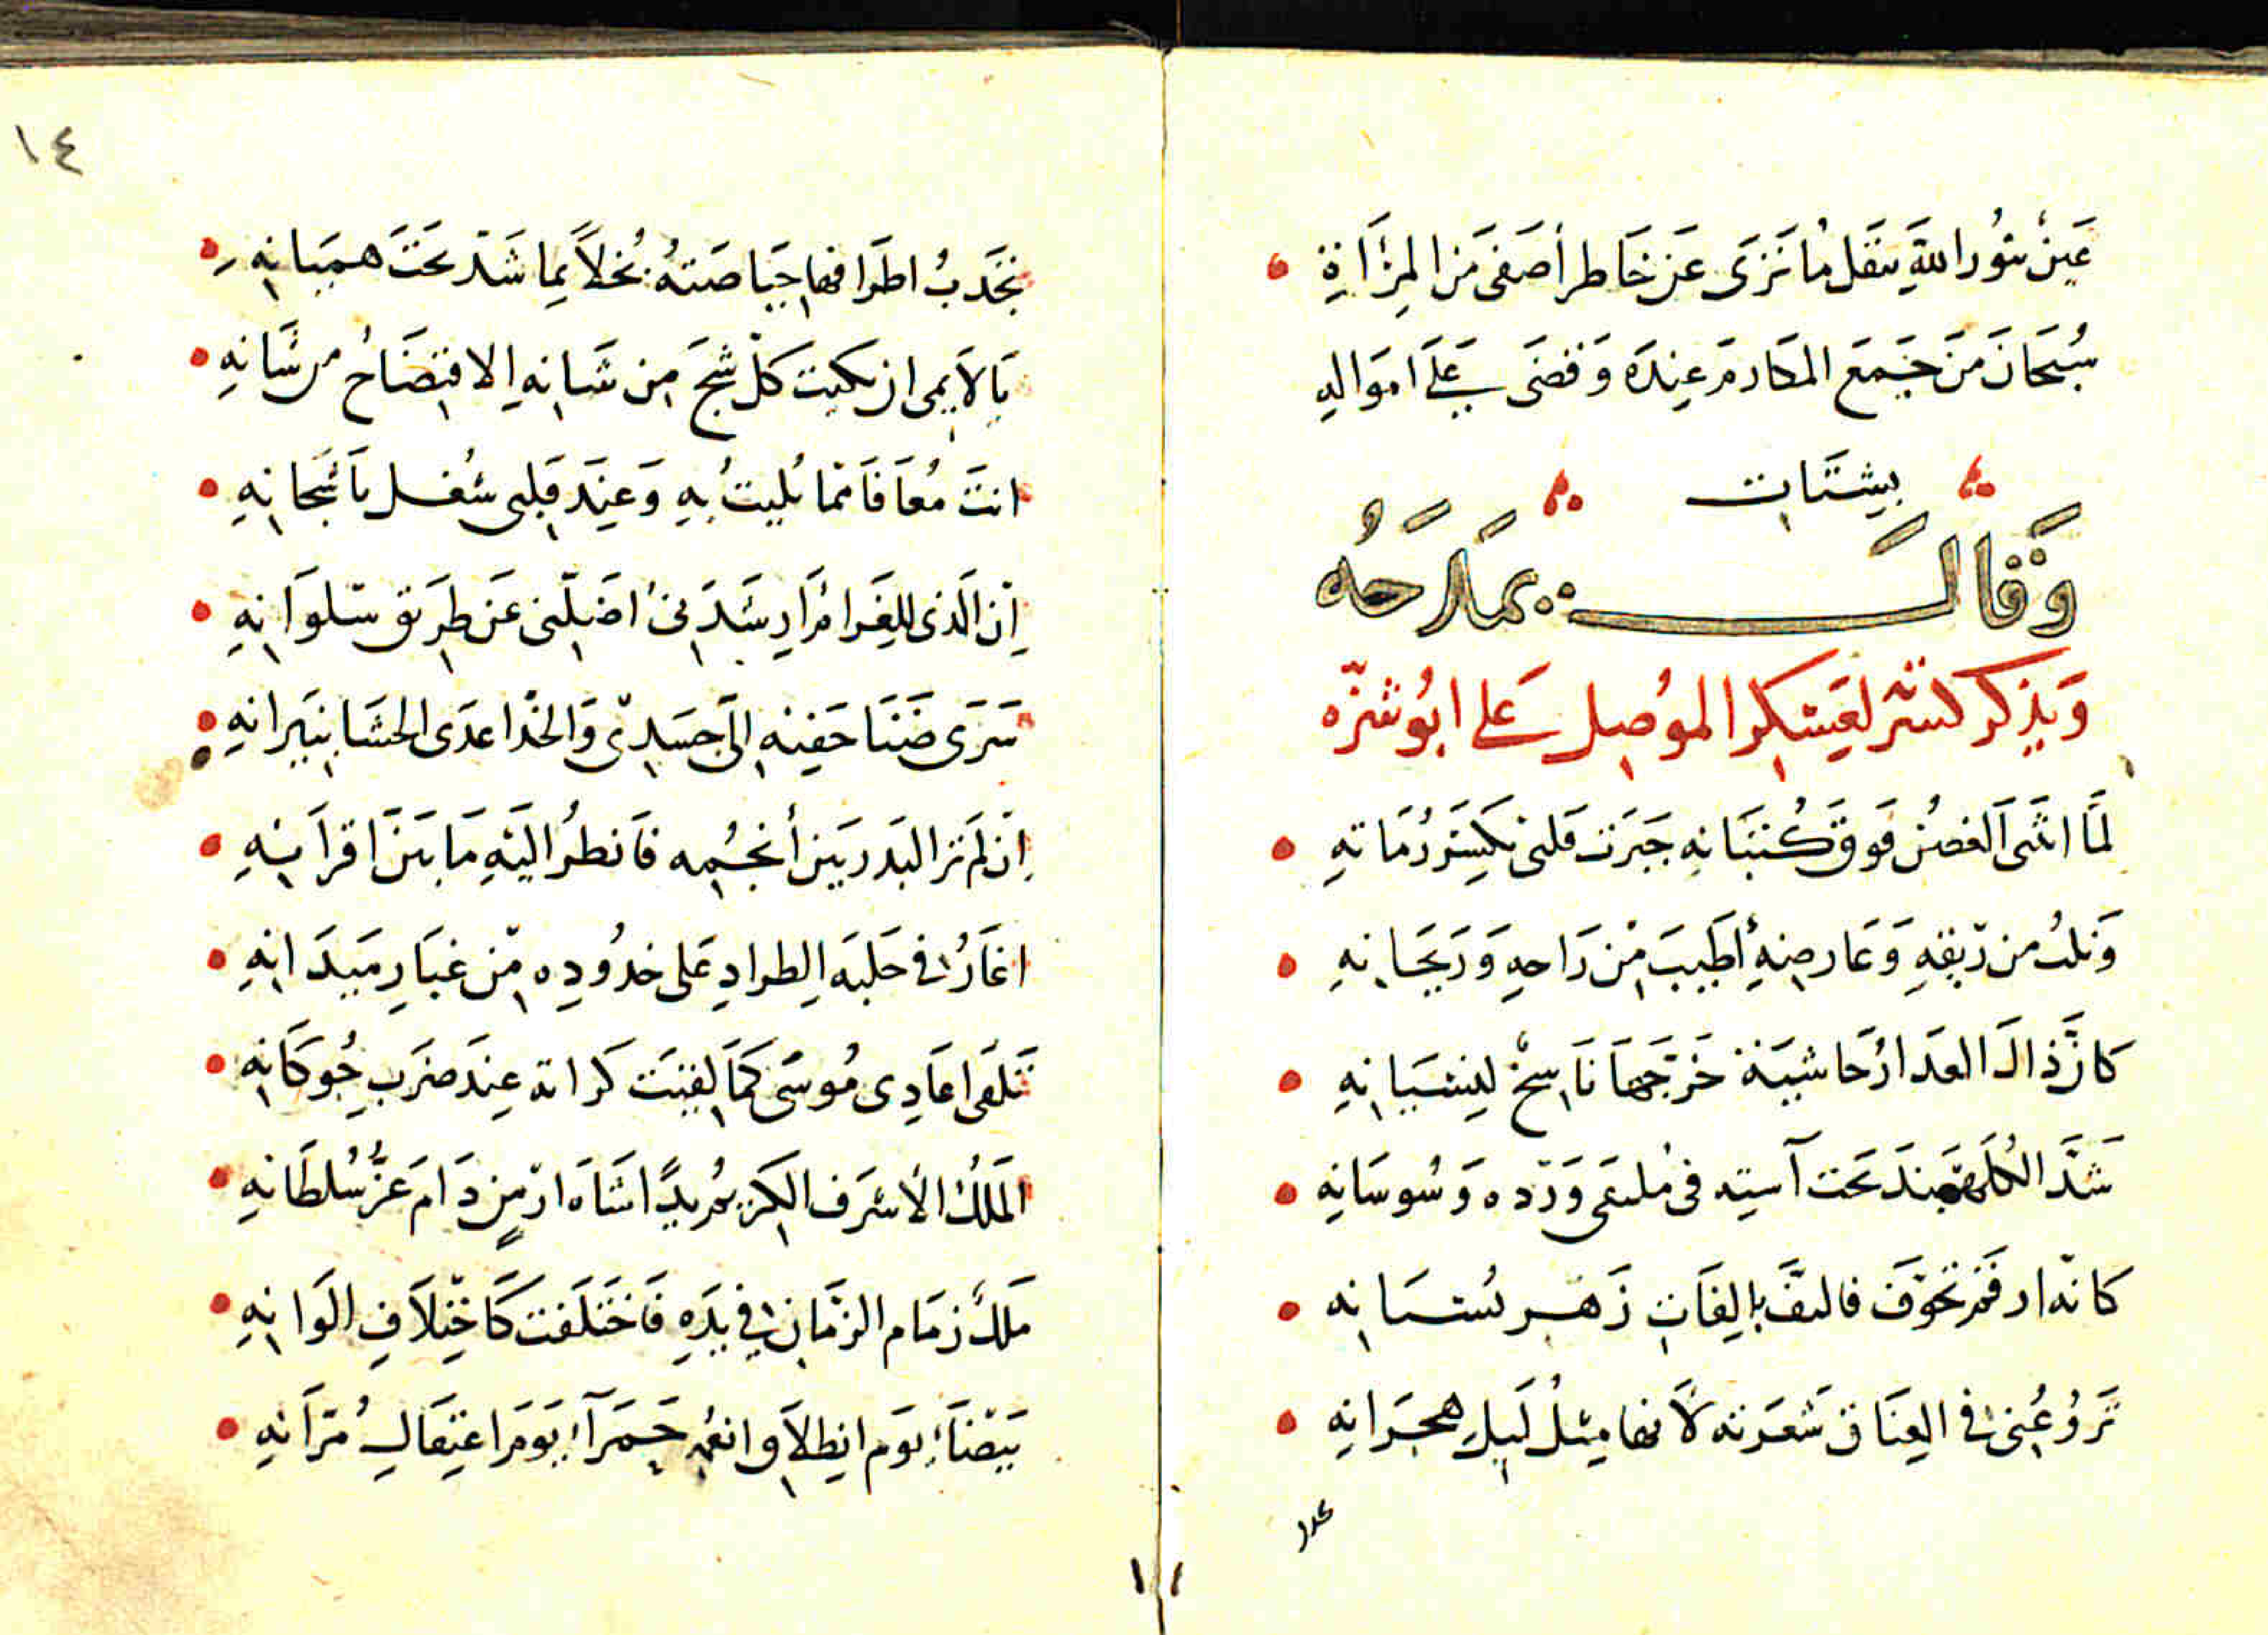 عَين بنوُر اللهِ ينقل ما نَرَى عَن خَاطر أصَفى مَن المرْاَةِ
سُبحَانَ مَن جَمعَ المكَارمَ عِندَه وَقضَى عَلَى اموَاله
بشتَات
وَقَالَ يمَدَحُه
وَيذكر كسَر لعَسَكر الموُصِل عَلى ابُو شزّه
لمَّا انثَنَى الغصُن فَوقَ كُثبَانهِ جَبَرَت قلبى بكسَر رُمَانهِ
وَنلتُ من رّيقهِ وَعَارضِهِ أطَيبَ مِن رَاحهِ وَرَيحَانهِ
كانَّ ذالَ العذارُ حَاشيَة خَرجَها نَاسخ لنِسيَانهِ
شدَّ الكُلَهبَندَ تحَت آسته فى ملتقى وَرّده وَسُوسَانهِ
كانّه ارقَم تخوّف فالتفَّ بالِفَاتِ زَهَر بُستَانه
تَروُعُنى فى العِنَاق شَعَرته لأنها مِثلُ لَيلِ هجَرانه
تجذبُ اطرَافها حَيَاصَتهُ بُخلاً بمِا شَدّ تَحتَ هميَانهِ
يَا لاَيمى ان بكيت كلّ شجَ مِن شَانهِ الافتضَاحُ من شَانهِ
انتَ مُعَافَا ممّا بُليتُ بهِ وَعِندَ قلبى شُغل باَشجَانهِ
اِنّ الَّذى للغَرامُ ارشَدَنى اضَلّنى عَن طرَيق سلوَانهِ
سَرَى ضَنَا جَفِنه اِلىَ جسَدىّ وَالخدّ اعدَى الحشَا بنيرَانهِ
اِن لَم تر البَدر بَين أنجُمه فانظرُ اليَهِ مَا بَين اقرَانِهِ
اغَارُ فى حَلبَه الطرادِ عَلى خدُودِه مِن غبَارِ مَيدَانهِ
تَلقَى اعَادِى مُوسَى كمَا لقيَت كراته عِندَ ضَربِ جُوكَانهِ
المَلكُ الأشرَف الكريمُ يدًا شَاه ارمنٍ دَامَ عَزُّ سُلطَانهِ
مَلكٌ زمَام الزمَانِ فى يَدَهِ فَاختَلفَت كاَختِلاَفِ الوَانهِ
بَيضَاَءِ يوَم انِطلاَق انعُمه حَمرَآءِ يَومَ اعتِقَالِ مُرّانهِ
١٤